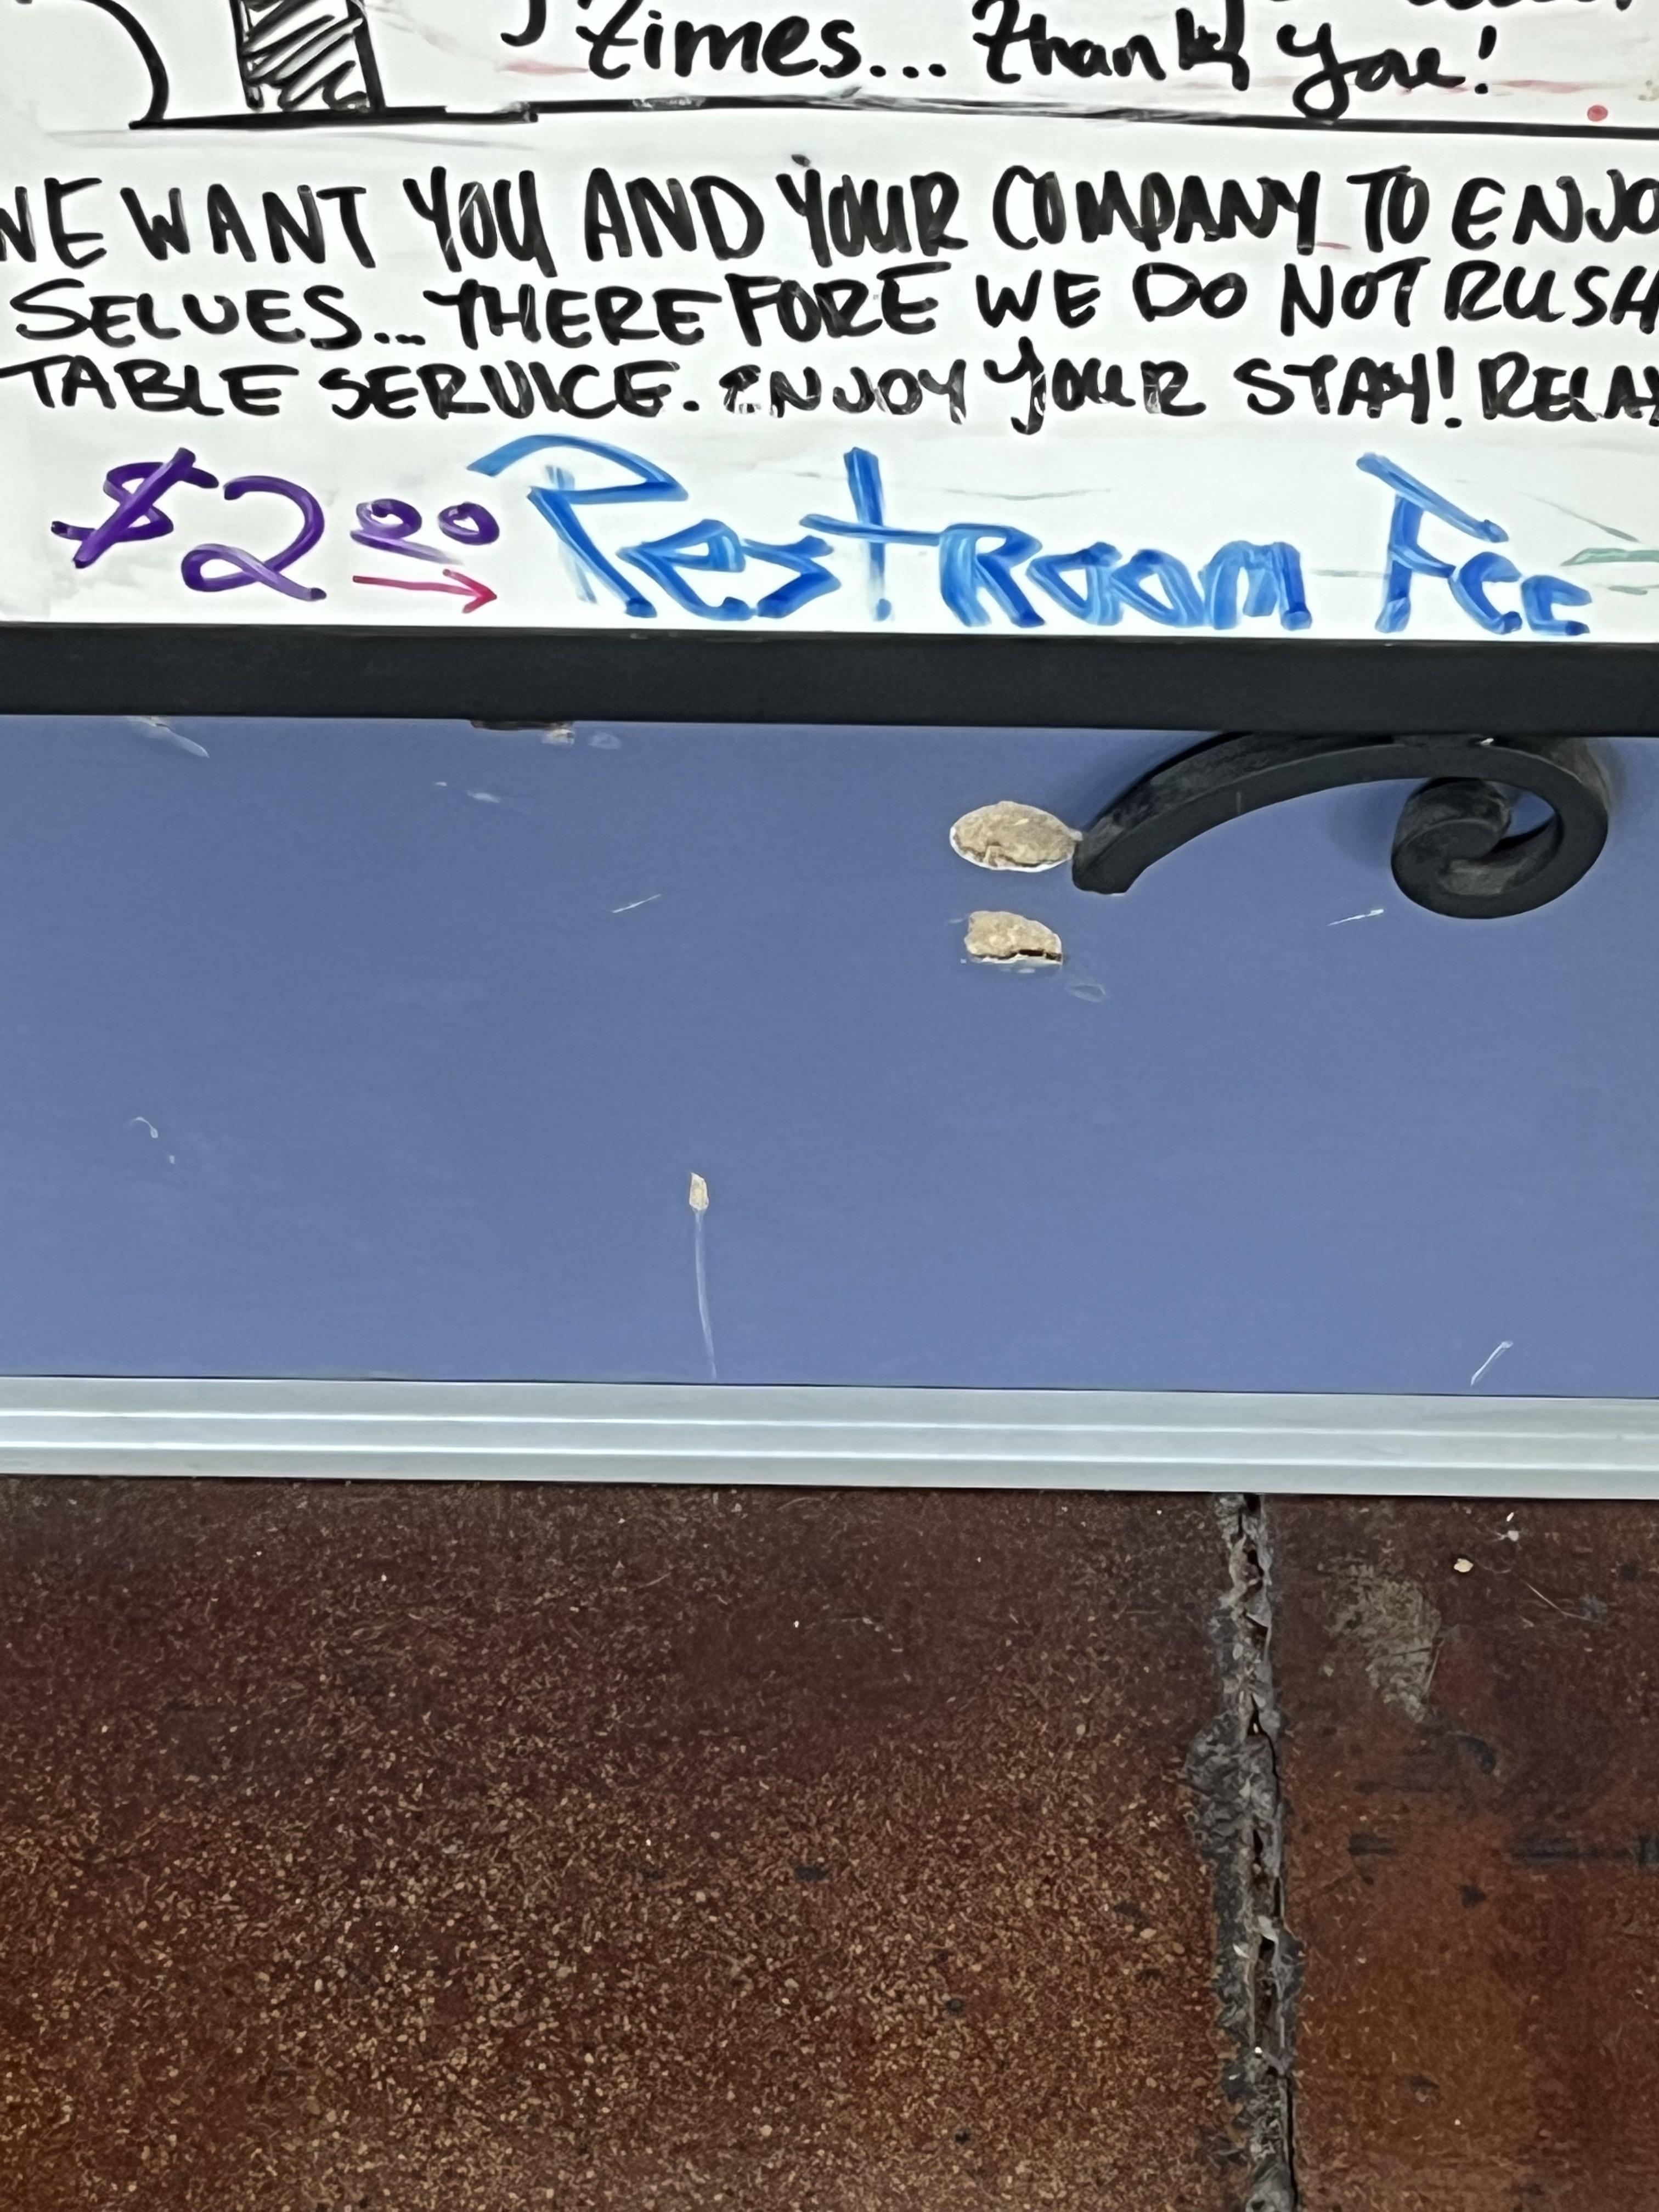 times... thank you!
WE WANT YOU AND YOUR COMPANY TO ENJO
SELVES... THEREFORE WE DO NOT RUSH
TABLE SERVICE. ENJOY YOUR STAY! RELAX
$2.00 → Restroom Fee